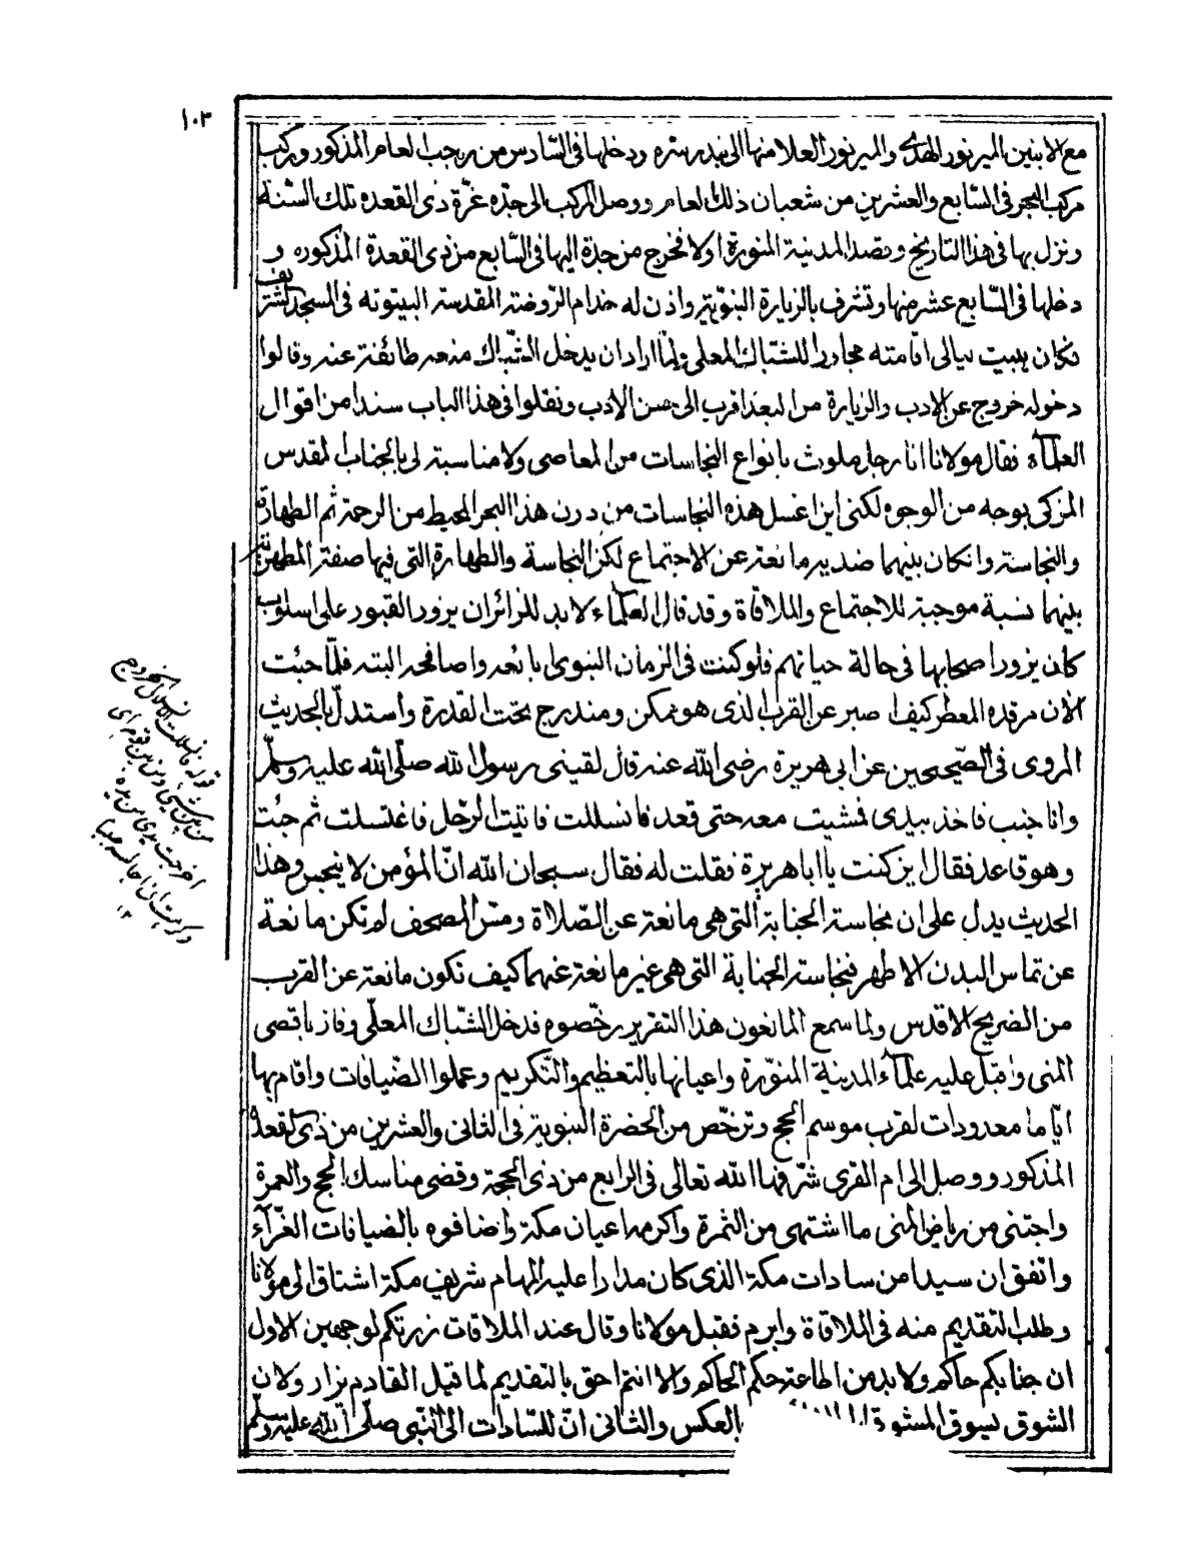 ١٠٣
مع الابنين المير نور الهدى والمير نور العلا منها الى بندر سره ودخلها فى السّادس من رجب العام المذكور وركب
مركب البحر فى السّابع والعشرين من شعبان ذلك العام ووصل المركب الى جدّه غرّة ذى القعده تلك السّنة
ونزل بها فى هذا التاريخ وقصد المدينة المنورة اولا فخرج من جدة اليها فى السّابع من ذى القعدة المذكوره و
دخلها فى السّابع عشر منها وتشرف بالزيارة النبويّة واذن له خدام الرّوضة المقدسة البيتوته فى المسجد الشريف
فكان يبيت ليالى اقامته مجاورا للشبّاك المعلى ولمّا اراد ان يدخل الشّباك منعه طائفة عنه وقالوا
دخوله خروج عن الادب والزيارة من البعد اقرب الى حسن الادب ونقلوا فى هذا الباب سندا من اقوال
العلمآء فقال مولانا انا رجل ملوث بانواع النجاسات من المعاصى ولا مناسبة لى بالجناب المقدس
المزكى بوجه من الوجوه لكنى اين اغسل هذه النجاسات من درن هذا البحر المحيط من الرحمة ثم الطهارة
والنجاسة وان كان بينهما ضديه مانعة عن الاجتماع لكن النجاسة والطهارة التى فيها صفة المطهرية
بينهما نسبة موجبة للاجتماع والملاقاة وقد قال العلمآء لابد للزائران يزور القبور على اسلوب
كان يزور اصحابها فى حالة حياتهم فلو كنت فى الزمان النبوى ابايعه واصافحه البته فلمّا جئت
الان مرقده المعطر كيف اصبر عن القرب الذى هو ممكن ومندرج تحت القدرة واستدلّ بالحديث
المروى فى الصّحيحين عن ابى هريرة رضى الله عنه قال لقينى رسول الله صلّى الله عليه وسلّم
وانا جنب فاخذ بيدى فمشيت معه حتى قعد فانسللت فاتيت الرّحل فاغتسلت ثم جئت
وهو قاعد فقال اين كنت يا ابا هريرة فقلت له فقال سبحان الله انّ المؤمن لا ينجس وهذا
الحديث يدل على ان نجاسة الجنابة التى هى مانعة عن الصّلاة ومسّ المصحف لم تكن مانعة
عن تماس البدن الاطهر فنجاسة الجنابة التى هى غير مانعة عنهما كيف تكون مانعة عن القرب
من الضريح الاقدس ولما سمع المانعون هذا التقرير رخّصوه فدخل الشبّاك المعلّى وفاز باقصى
المنى واقبل عليه علمآء المدينة المنوّرة واعيانها بالتعظيم والتّكريم وعملوا الضّيافات واقام بها
ايّاما معدودات لقرب موسم الحج وترخّص من الحضرة النبوية فى الثانى والعشرين من ذى القعدة
المذكور ووصل الى ام القرى شرّفها الله تعالى فى الرابع من ذى الحجة وقضى مناسك الحج والعمرة
واجتنى من رياض المنى ما اشتهى من الثمرة واكرمه اعيان مكة واضافوه بالضيافات الغرّآء
واتفق ان سيدا من سادات مكة الذى كان مدارا عليه المهام شريف مكة اشتاق الى مولانا
وطلب التقديم منه فى الملاقاة وابرم فقبل مولانا وقال عند الملاقات زرتكم لوجهين الاول
ان جنابكم حاكم ولابد من اطاعة حكم الحاكم والا انتم احق بالتقديم لما قيل القادم نزار ولان
الشوق يسوق المشوق بالعكس والثانى انّ للسّادات الى النّبى صلّى الله عليه وسلّم
قوله فانسللت الانسلال الخروج